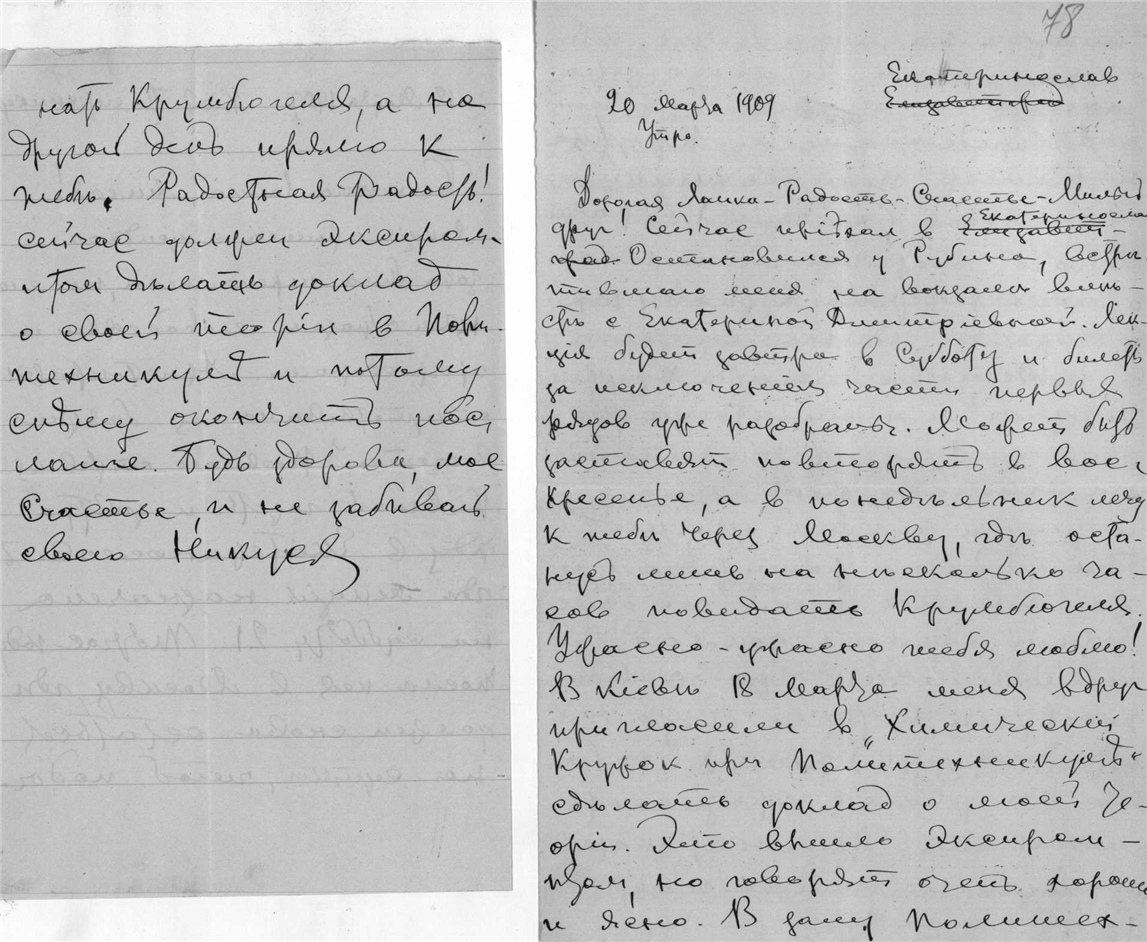 нать Крумбюгеля, а на
другой день прямо к
тебѣ. Радостная Радость!
сейчас должен экспром-
птом дѣлать доклад
о своей теоріи в Поли-
техникумѣ и потому
спѣшу окончить пос-
ланіе. Будь здорова, мое
Счастье, и не забывай
своего Никуся
78
Екатеринослав
Елизаветград
20 Марта 1909
Утро.
Дорогая Лапка-Радость-Счастье-Милый
друг! Сейчас пріѣхал в Елизавет-
Екатеринослав
град. Остановился у Рубина, встрѣ-
тившаго меня на вокзалѣ вмѣ-
стѣ с Екатериной Дмитріевной. Лек-
ція будет завтра в Субботу и билеты
за исключеніем части первых
рядов уже разобраны. Может быть
заставят повторять в вос-
кресенье, а в понедѣльник лечу
к тебѣ через Москву, гдѣ оста-
нусь лишь на нѣсколько ча-
сов повидать Крумбюгеля.
Ужасно-ужасно тебя люблю!
В Кіевѣ 18 Марта меня вдруг
пригласили в „Химическій
Кружок при Политехникумѣ“
сдѣлать доклад о моей те-
оріи. Это вышло экспром-
птом, но говорят очень хорошо
и ясно. В залу Политех-